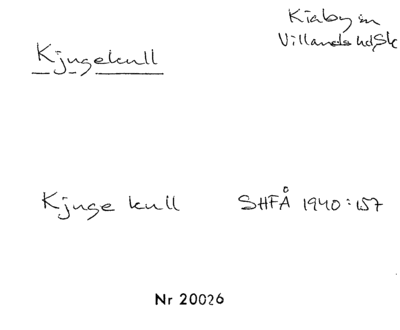 Kiaby sn
Villands hd, Sk
Kjugekull
Kjuge kull SHFÅ 1940:157
Nr 20026